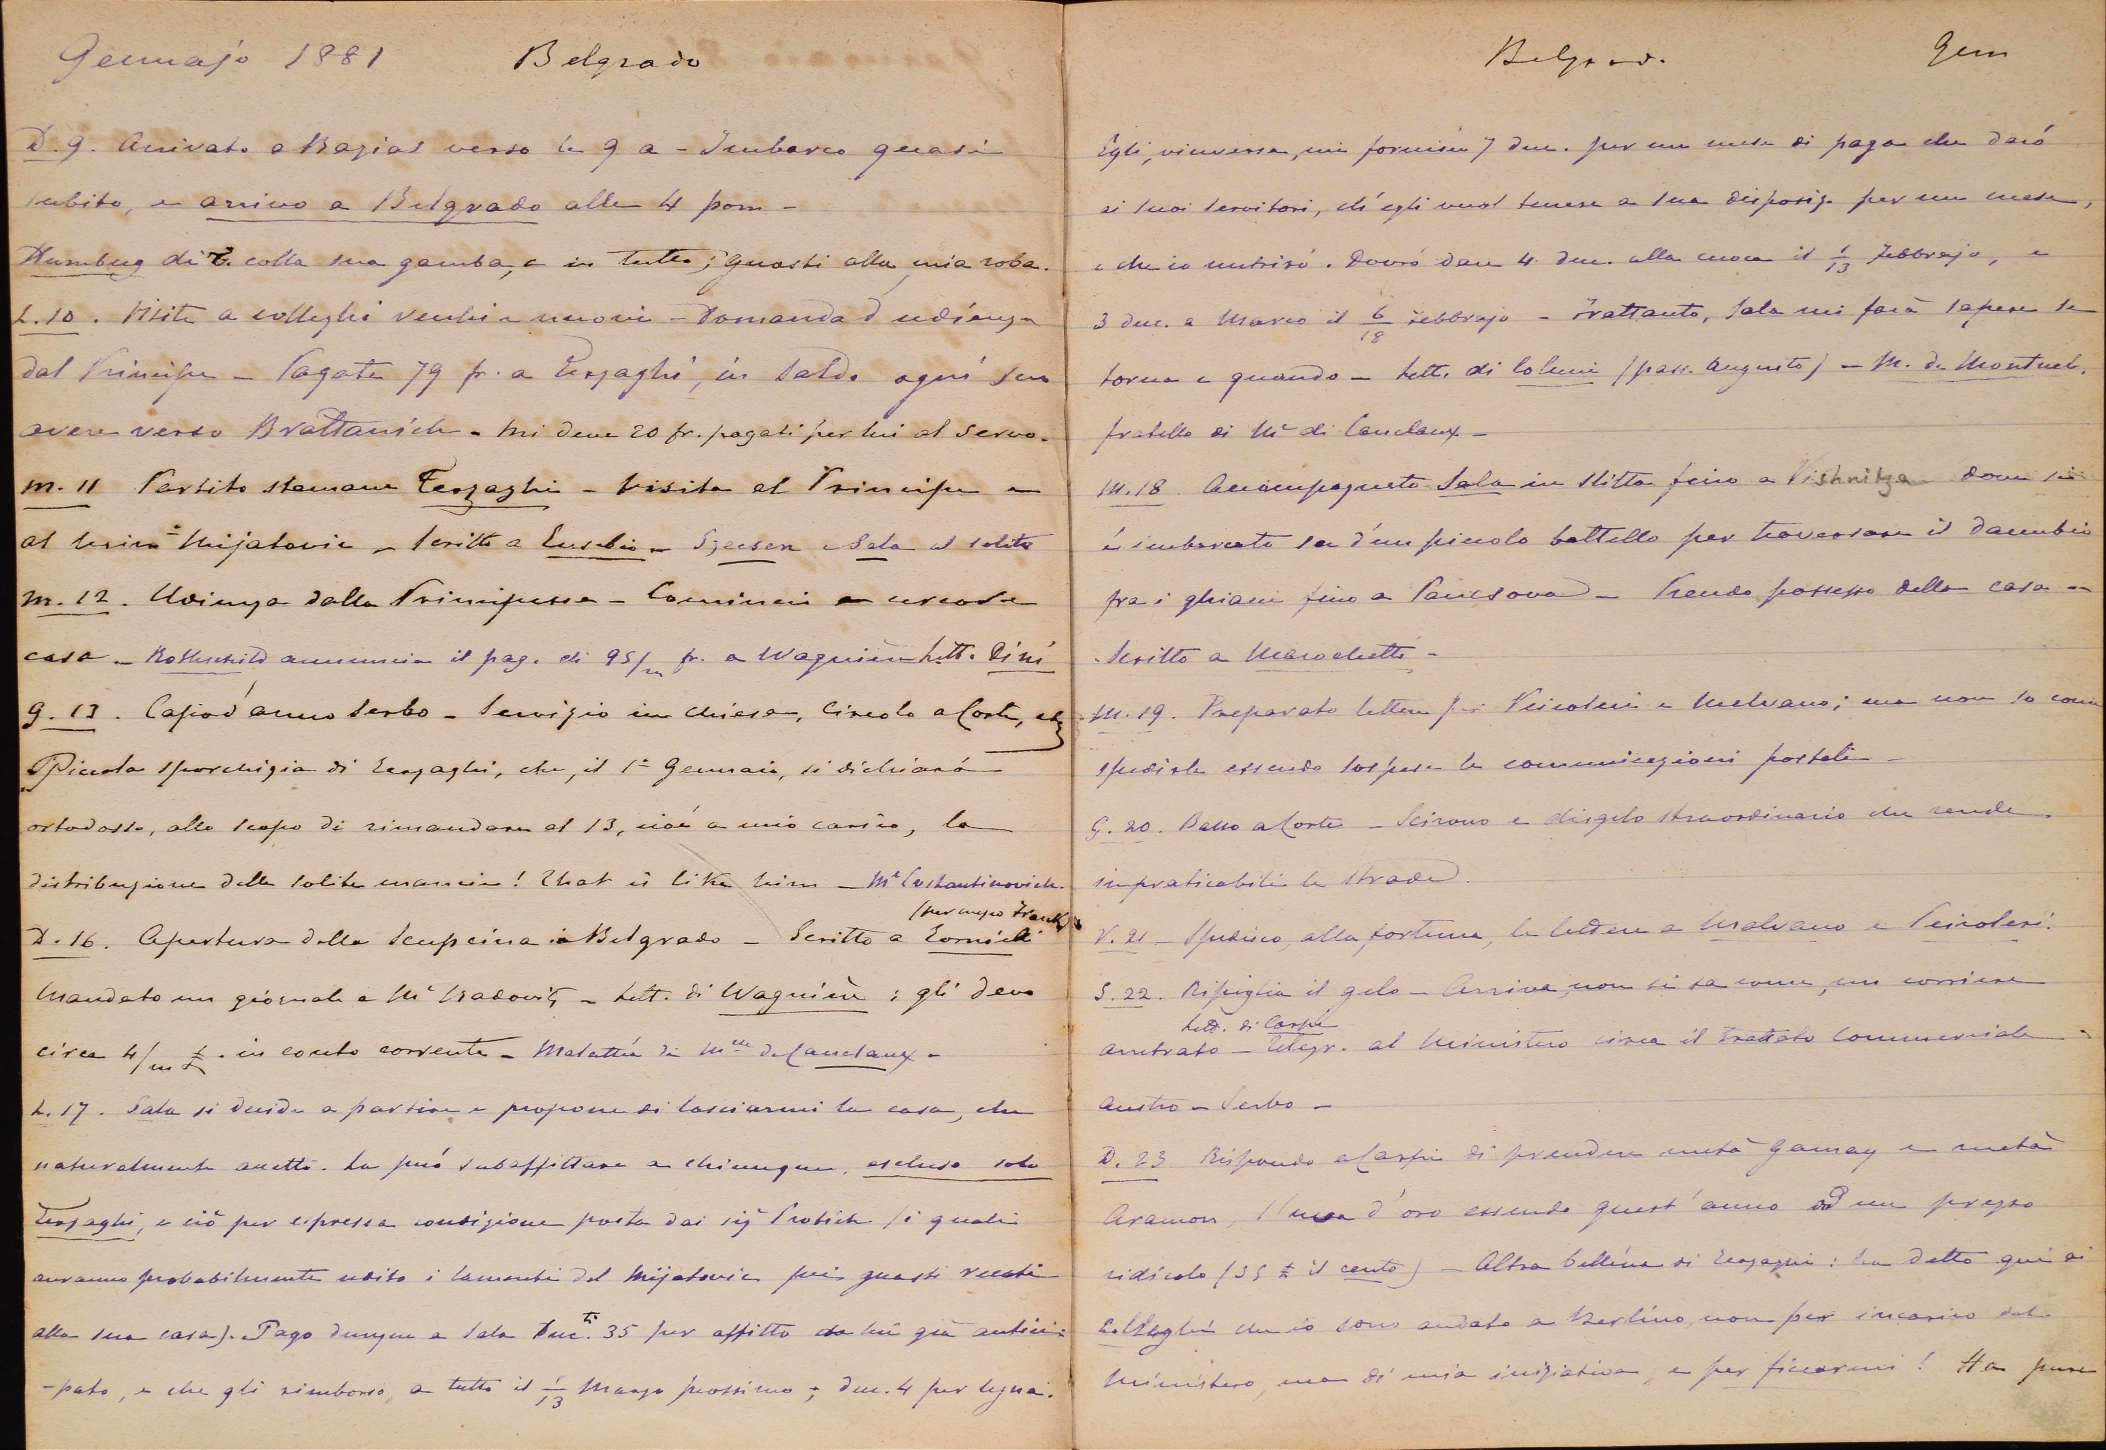 Gennajo 1881 Belgrado
D. 9. Arrivato a Bazias verso le 9 a - Imbarco quasi
subito, e arrivo a Belgrado alle 4 pom -
Humbug di T. colla sua gamba, e in tutto; guasti alla mia roba.
L. 10. Visite a colleghi vecchi e nuovi - Domanda d'udienza
dal Principe - Pagate 79 fr. a Terzaghi, in saldo ogni suo
avere verso Brattanich - Mi deve 20 fr. pagati per lui al servo.
M. 11 Partito stamane Terzaghi - Visita al Principe e
al Mijatovic - Scritto a Eusebio - Szecsen e Sala al solito
M. 12. Udienza dalla Principessa - Comincio a cercare
casa - Rothschild annuncia il pag. di 95/m fr. a Wagnière Lett. Dini
G. 13. Capod'anno Serbo - Servizio in chiesa, Circolo a Corte, etc
Piccola sporchizia di Terzaghi, che, il 1º Gennaio, si dichiarò
ortodosso, allo scopo di rimandare al 13, cioè a mio carico, la
distribuzione delle solite mancie! That is like him - Me Costantinovich.
(per mezzo Franchi)
D. 16. Apertura della Scupcina a Belgrado - Scritto a Tornielli
Mandato un giornale a Me Radovitz - Lett. di Wagnière: gli devo
circa 4/m £. in conto corrente - Malattia di Mme de Canclaux -
L. 17. Sala si decide a partire e propone di lasciarmi la casa, che
naturalmente accetto. La può subaffittare a chiunque, escluso solo
Terzaghi, e ciò per espressa condizione posta dai sigi Protich (i quali
avranno probabilmente udito i lamenti del Mijatovic pei guasti recati
alla sua casa). Pago dunque a Sala Ducti. 35 per affitto da lui già antici-
-pato, e che gli rimborso, a tutto il 1/13 Marzo prossimo; duc. 4 per legna.
Belgrad. Gen
Egli, viceversa, mi fornisce 7 duc. per un mese di paga che darò
ai suoi servitori, ch'egli vuol tenere a sua disposiz. per un mese,
e che io nutrirò. Dovrò dare 4 duc. alla cuoca il 1/13 Febbrajo, e
3 duc. a Marco il 6/18 Febbrajo - Frattanto, Sala mi farà sapere se
torna e quando - Lett. di (pass. Augusto) - M. de Montueb.
fratello di Me di Canclaux -
M. 18 Accompagnato Sala in slitta fino a Vishnitza dove si
è imbarcato su d'un piccolo battello per traversare il Danubio
fra i ghiacci fino a Pancsova - Prendo possesso della casa -
- Scritto a Marochetti -
M. 19. Preparato lettere per Peiroleri e Malvano; ma non so come
spedirle essendo sospese le comunicazioni postali -
G. 20. Ballo a Corte - Scirocco e disgelo straordinario che rende
impraticabili le strade.
V. 21 - Spedisco, alla fortuna, le lettere a Malvano e Peiroleri.
S. 22. Ripiglia il gelo - Arriva, non si sa come, un corriere
Lett. di Carpi
arretrato - Telegr. al Ministero circa il trattato Commerciale
Austro-Serbo -
D. 23 Rispondo a Carpi di prendere metà Gamay e metà
Aramon, l'uva d'oro essendo quest'anno ad un prezzo
ridicolo (35 £ il cento) - Altra bellina di Terzaghi: ha detto qui ai
colleghi che io sono andato a Berlino, non per incarico del
Ministero, ma di mia iniziativa, e per ficcarmi! Ha pure